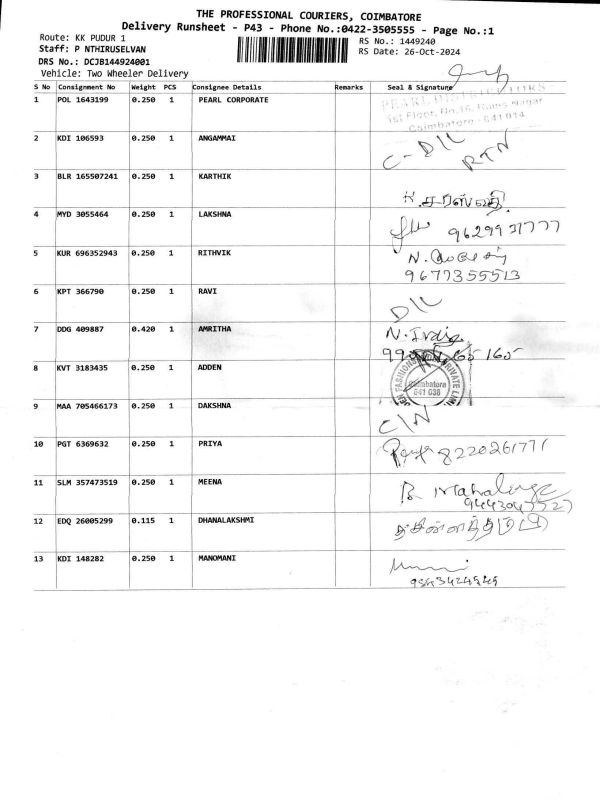 THE PROFESSIONAL COURIERS, COIMBATORE
Delivery Runsheet - P43 - Phone No.:0422-3505555 - Page No.:1
Route: KK PUDUR 1
RS No.: 1449240
Staff: P NTHIRUSELVAN
RS Date: 26-Oct-2024
DRS No.: DCJB144924001
Vehicle: Two Wheeler Delivery
S No Consignment No Weight PCS Consignee Details Remarks Seal & Signature
1 POL 1643199 0.250 1 PEARL CORPORATE
PEARL DISTRIBUTORS
1st Floor, No.16, Rams Nagar
Coimbatore - 641 014
2 KDI 106593 0.250 1 ANGAMMAI C-D/L RTN
3 BLR 165507241 0.250 1 KARTHIK
க.சரஸ்வதி
4 MYD 3055464 0.250 1 LAKSHNA
9629931777
5 KUR 696352943 0.250 1 RITHVIK N.
9677355513
6 KPT 366790 0.250 1 RAVI D/L
7 DDG 409887 0.420 1 AMRITHA N.
165165
8 KVT 3183435 0.250 1 ADDEN
FASHIONS PRIVATE LIMI
Coimbatore
641 038
9 MAA 705466173 0.250 1 DAKSHNA C/N
10 PGT 6369632 0.250 1 PRIYA Priya 8220261771
11 SLM 357473519 0.250 1 MEENA B. Mahalinga
12 EDQ 26005299 0.115 1 DHANALAKSHMI
13 KDI 148282 0.250 1 MANOMANI